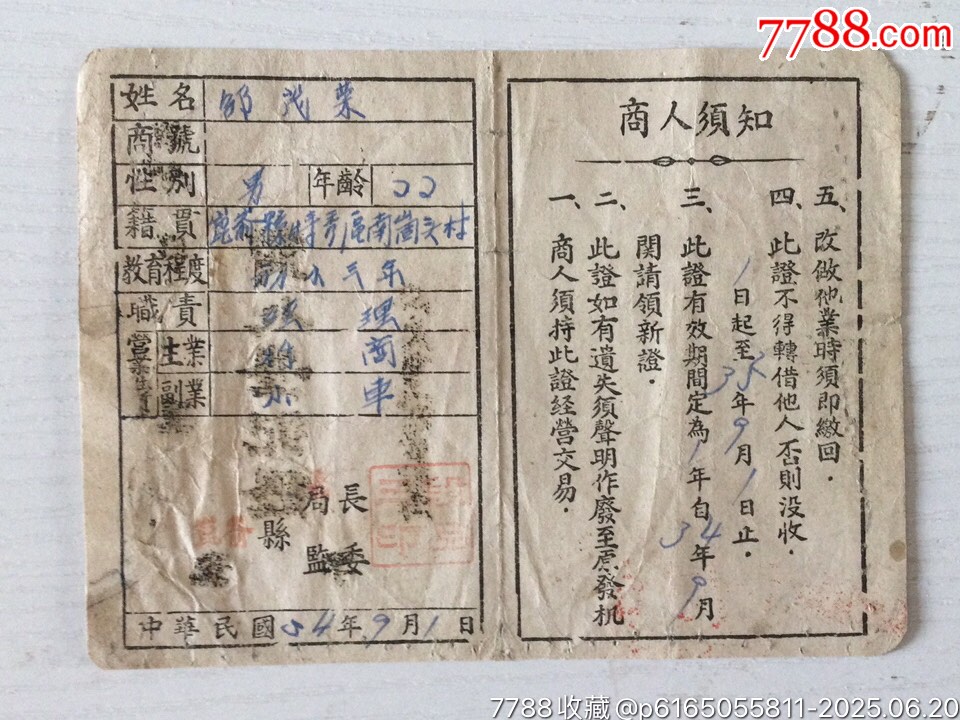 7788.com
姓名 邹茂荣
商號
性别 男 年齡 22
籍貫 崑崙縣 區南崗头村
教育程度 初小三年
職責 經理
營業 主業 商
副業 小車
局長
縣
監委
中華民國34年9月1日
商人須知
一、商人須持此證经营交易.
二、此證如有遺失須聲明作廢至原發机
関請領新證.
三、此證有效期間定為1年自34年9月
1日起至35年9月1日止.
四、此證不得轉借他人否則没收.
五、改做他業時須即繳回.
7788收藏@p6165055811-2025.06.20